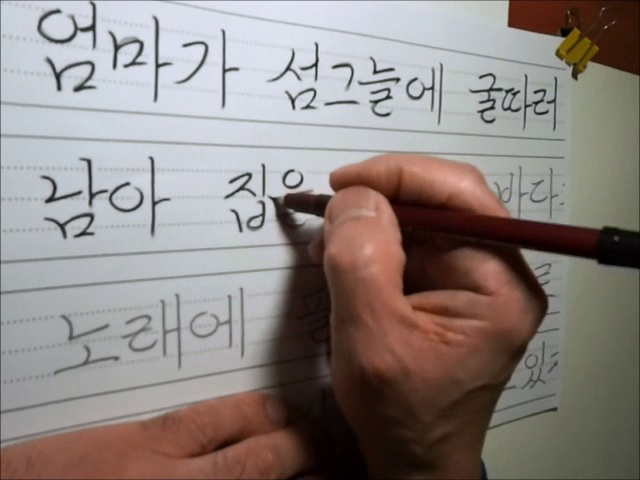 엄마가 섬그늘에 굴따러
남아 집 바다
노래에